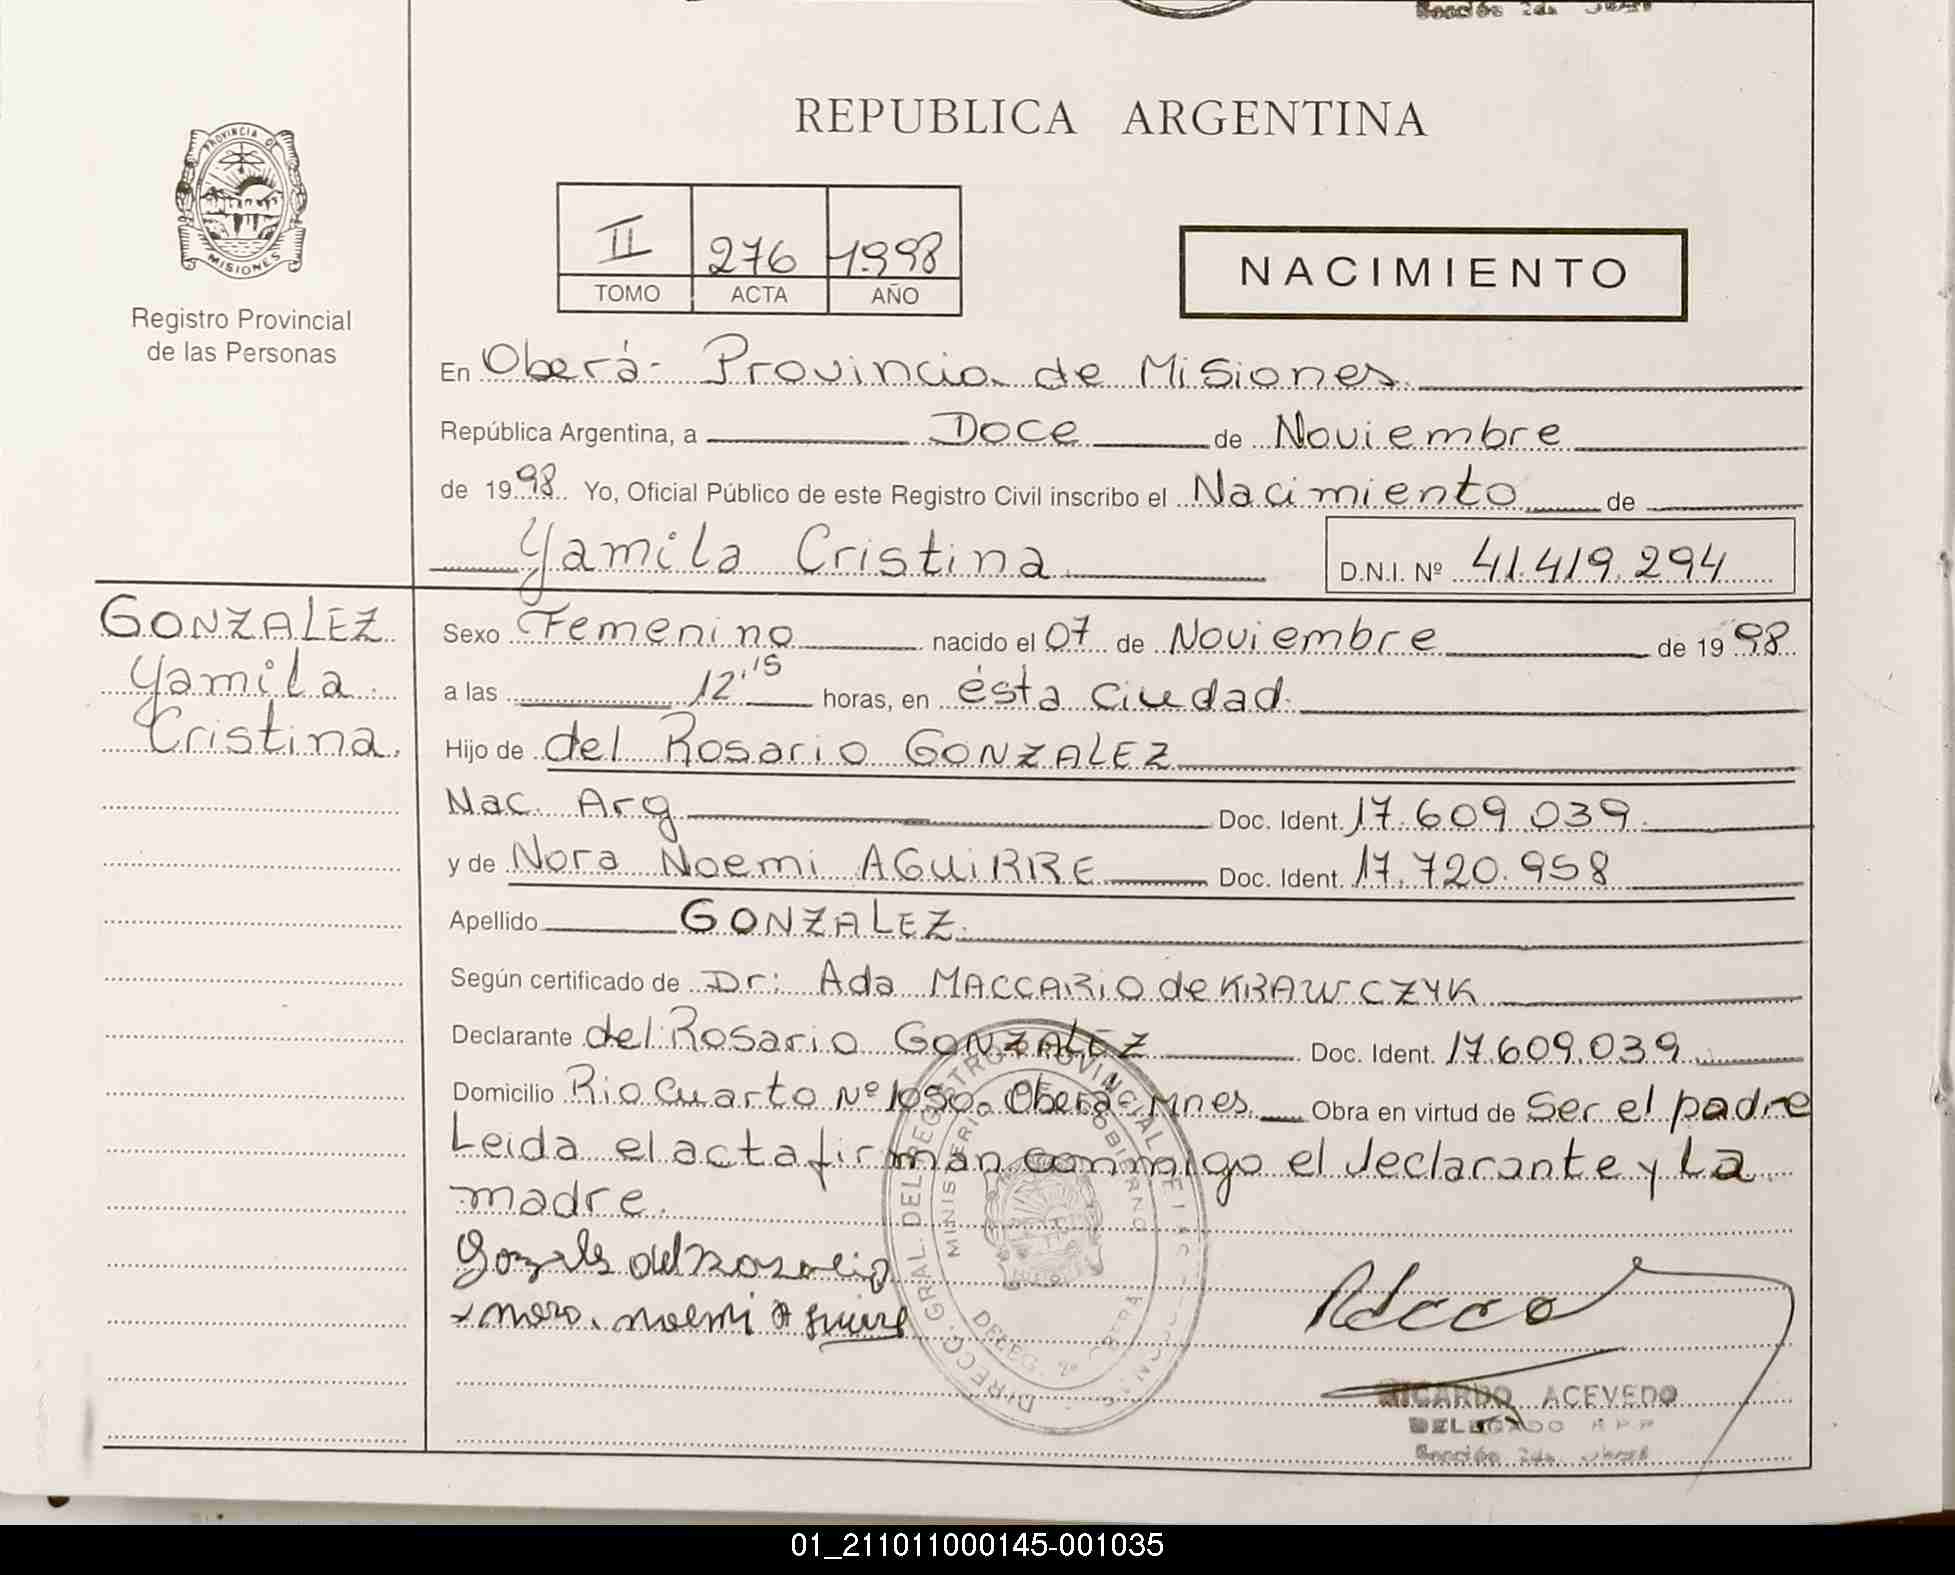 Sección 2da. Oberá
REPUBLICA ARGENTINA
PROVINCIA DE
MISIONES
Registro Provincial
de las Personas
II 276 1.998
TOMO ACTA AÑO
NACIMIENTO
En Oberá - Provincia de Misiones
República Argentina, a Doce de Noviembre
de 1998 Yo, Oficial Público de este Registro Civil inscribo el Nacimiento de
Yamila Cristina D.N.I. Nº 41.419.294
GONZALEZ
Yamila
Cristina.
Sexo Femenino nacido el 07 de Noviembre de 1998
a las 12,15 horas, en ésta ciudad.
Hijo de del Rosario GONZALEZ
Nac. Arg Doc. Ident. 17.609.039
y de Nora Noemi AGUiRRE Doc. Ident. 17.720.958
Apellido GONZALEZ
Según certificado de Dr: Ada MACCARiO de KRAWCZYK
Declarante del Rosario GONZALEZ Doc. Ident. 17.609.039
Domicilio Rio Cuarto Nº 1050. Oberá Mnes Obra en virtud de Ser el padre
Leida el acta firman conmigo el declarante y la
madre.
Gonzalez del Rosario
Nora. Noemi Aguirre
DIRECC. GRAL. DEL REGISTRO PROVINCIAL DE
MINISTERIO DE GOBIERNO
DELEG. 2º OBERA
RICARDO ACEVEDO
DELEGADO RPP
Sección 2da. Oberá
01_211011000145-001035